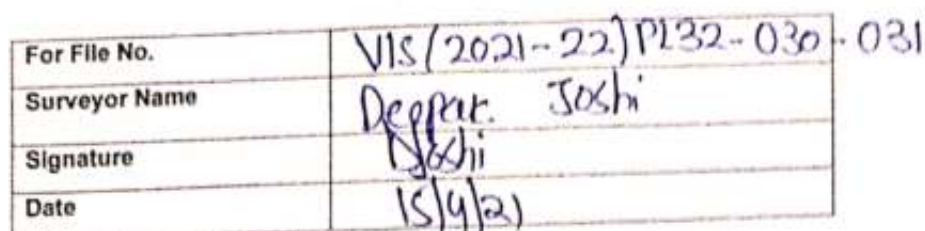 For File No. VIS(2021-22)PL32-030-031
Surveyor Name Deepak Joshi
Signature DJoshi
Date 15/4/21